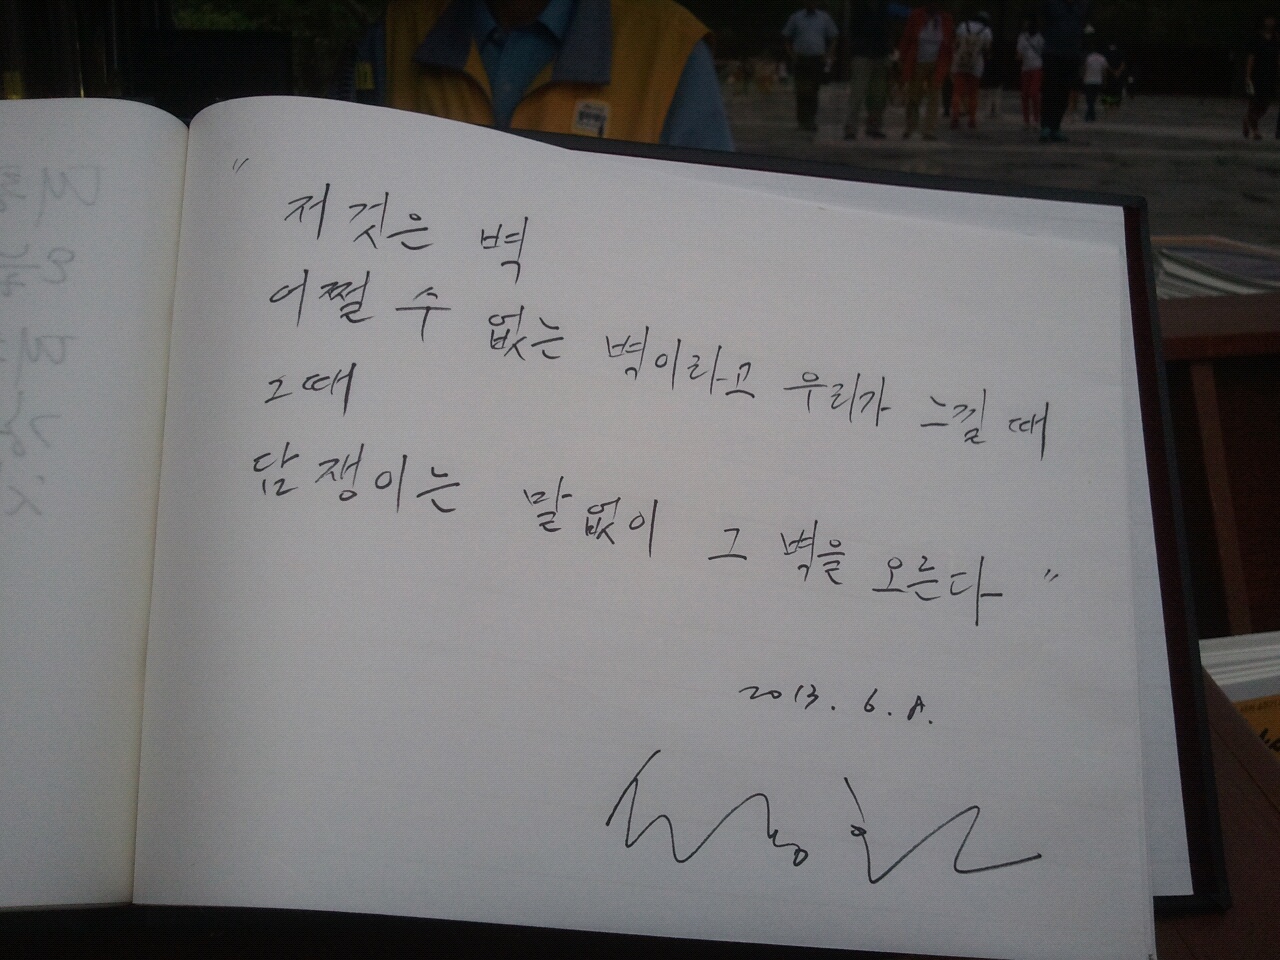 "
저것은 벽
어쩔 수 없는 벽이라고 우리가 느낄 때
그때
담쟁이는 말없이 그 벽을 오른다 "
2013. 6. 8.